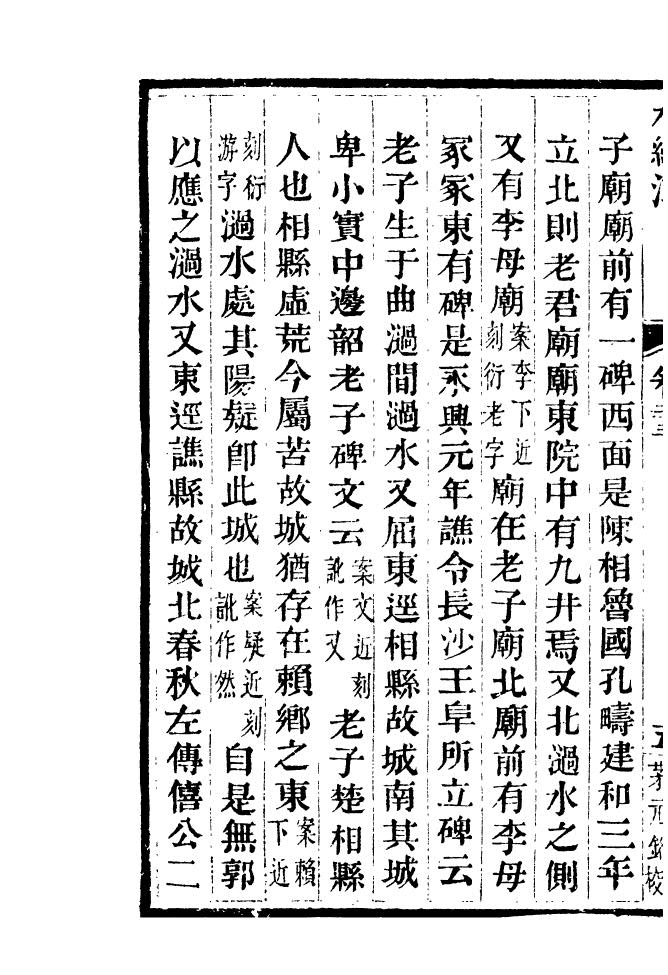 子廟廟前有一碑西面是陳相魯國孔疇建和三年
立北則老君廟廟東院中有九井焉又北濄水之側
又有李母廟案李下近刻衍老字廟在老子廟北廟前有李母
冢冢東有碑是永興元年譙令長沙王阜所立碑云
老子生于曲濄間濄水又屈東逕相縣故城南其城
卑小實中邊韶老子碑文云案文近刻訛作又老子楚相縣
人也相縣虛荒今屬苦故城猶存在賴鄉之東案賴下近
刻衍游字濄水處其陽疑卽此城也案疑近刻訛作然自是無郭
以應之濄水又東逕譙縣故城北春秋左傳僖公二